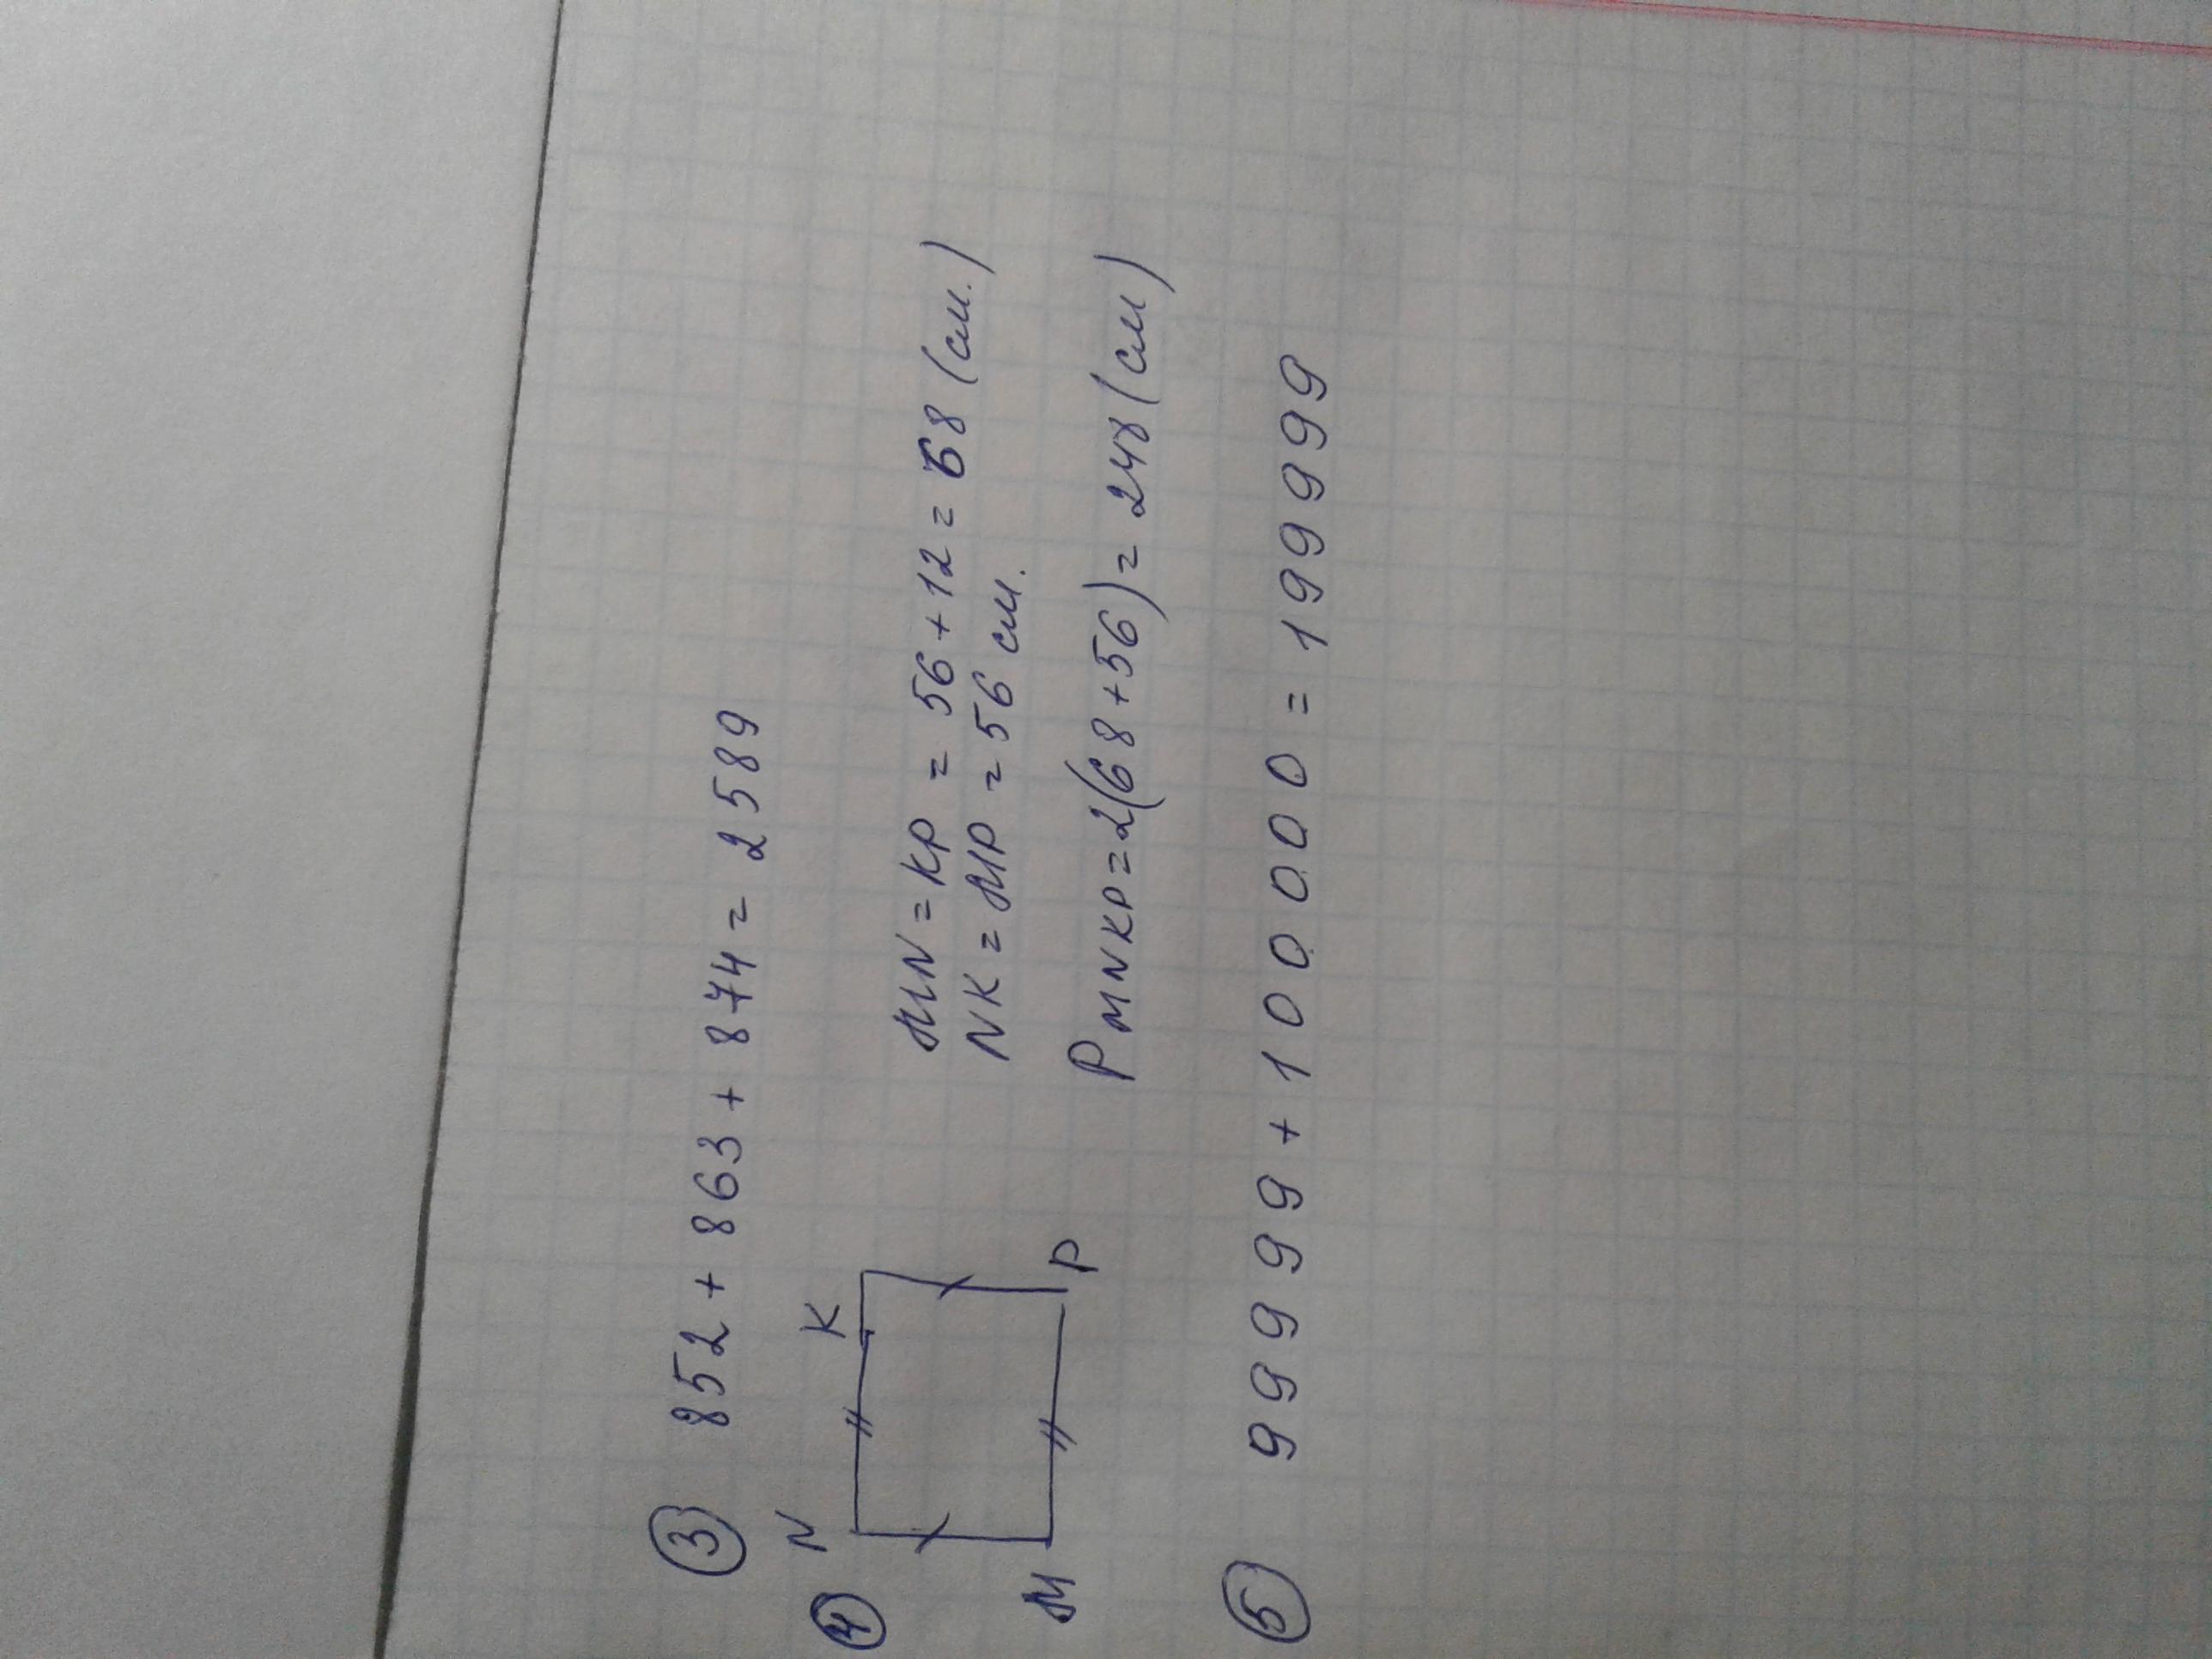 ③ 852 + 863 + 874 = 2589
④ N K
M P
MN = KP = 56 + 12 = 68 (см.)
NK = MP = 56 см.
P MNKP = 2(68 + 56) = 248 (см)
⑤ 99999 + 100000 = 199999